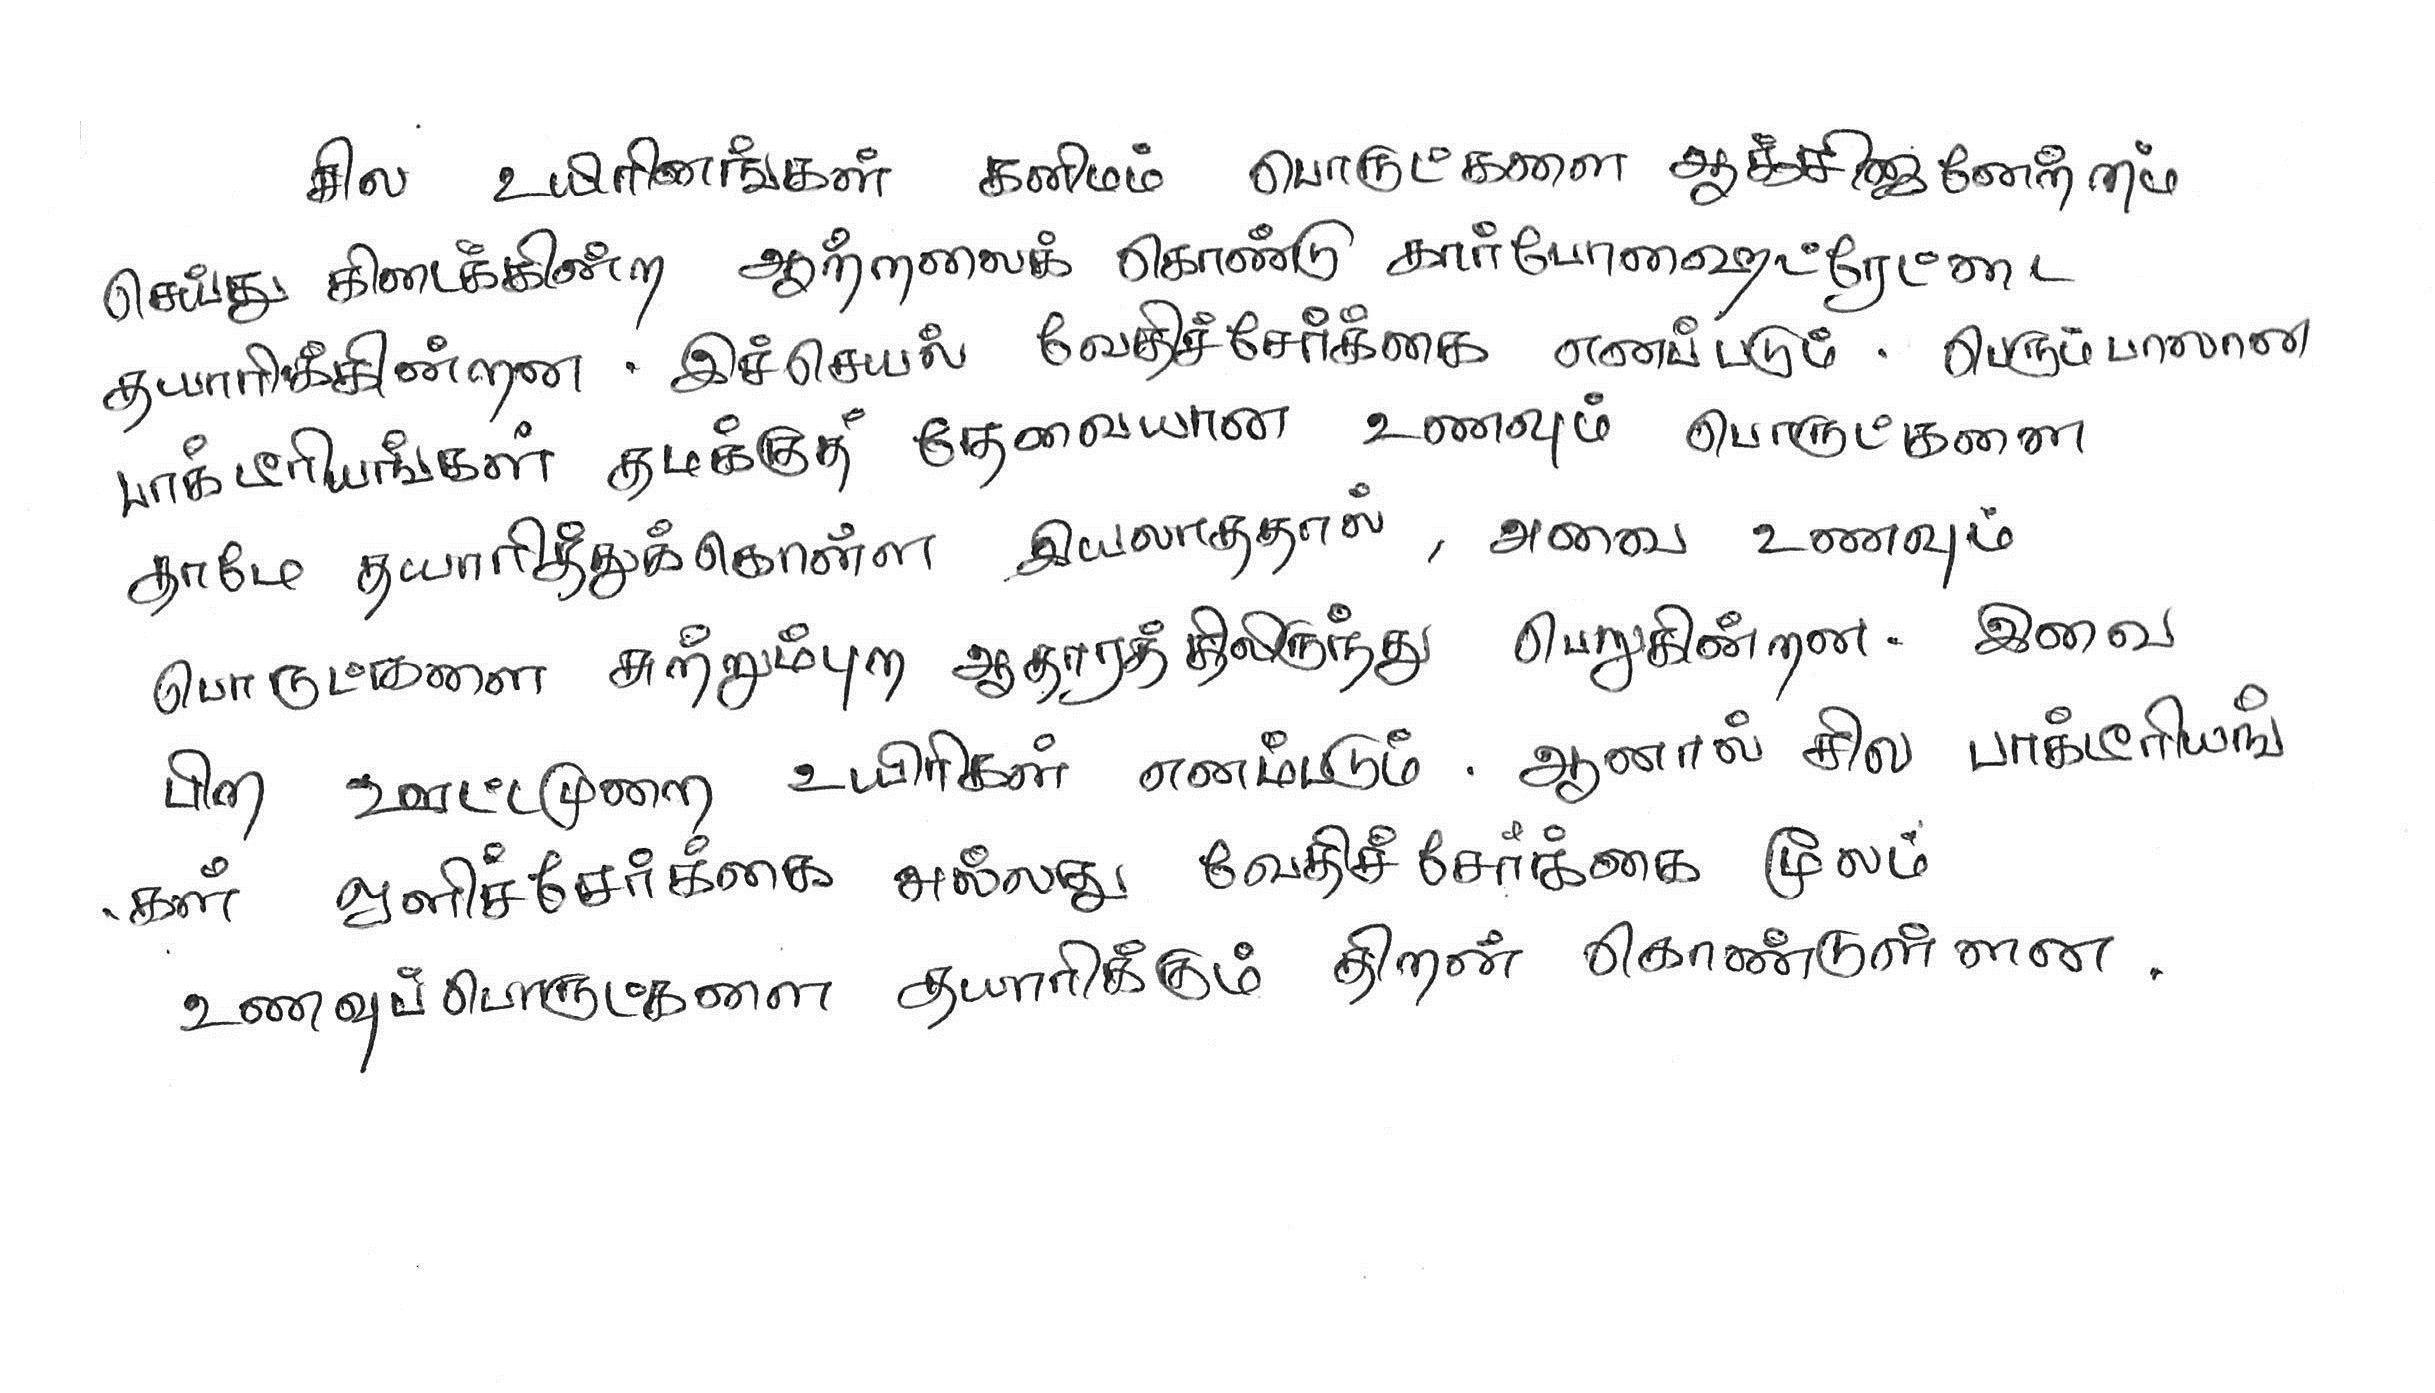 சில உயிரினங்கள் கனிமம் பொருட்களை ஆக்சிஜனேற்றம்
செய்து கிடைக்கின்ற ஆற்றலைக் கொண்டு கார்போஹைட்ரேட்டை
தயாரிக்கின்றன . இச்செயல் வேதிச்சேர்க்கை எனப்படும் . பெரும்பாலான
பாக்டீரியங்கள் தமக்குத் தேவையான உணவும் பொருட்களை
தாமே தயாரித்துக்கொள்ள இயலாததால் , அவை உணவும்
பொருட்களை சுற்றும்புற ஆதாரத்திலிருந்து பெறுகின்றன . இவை
பிற ஊட்டமுறை உயிரிகள் எனம்படும் . ஆனால் சில பாக்டீரியங்
கள் ஒளிச்சேர்க்கை அல்லது வேதிச்சேர்க்கை மூலம்
உணவுப்பொருட்களை தயாரிக்கும் திறன் கொண்டுள்ளன .